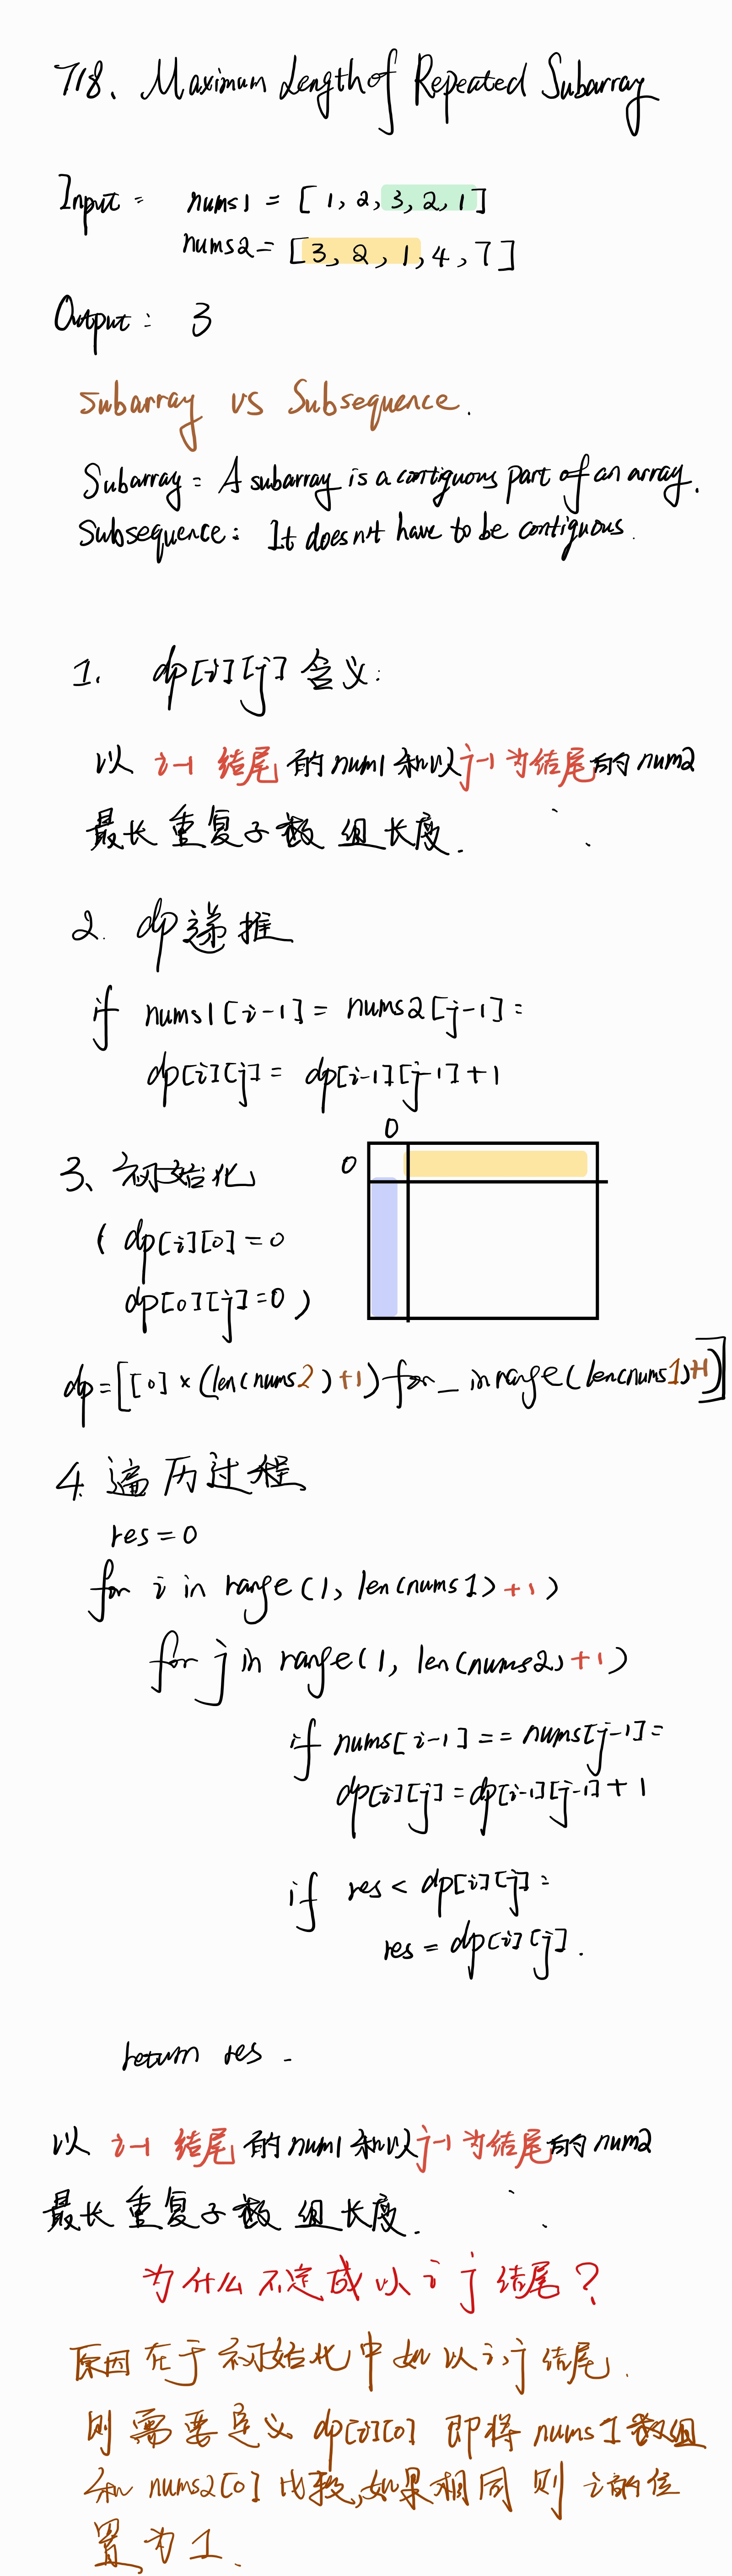 718、Maximum Length of Repeated Subarray
Input: nums1 = [1, 2, 3, 2, 1]
nums2 = [3, 2, 1, 4, 7]
Output: 3
Subarray VS Subsequence.
Subarray: A subarray is a contiguous part of an array.
Subsequence: It doesn't have to be contiguous.
1. dp[i][j] 含义:
以 i-1 结尾 的 num1 和以 j-1 为结尾的 num2
最长重复子数组长度.
2. dp 递推
if nums1[i-1] = nums2[j-1]:
dp[i][j] = dp[i-1][j-1]+1
0
3、初始化 0
( dp[i][0] = 0
dp[0][j] = 0 )
dp = [[0] × (len(nums2)+1) for _ in range(len(nums1)+1)]
4. 遍历过程
res = 0
for i in range(1, len(nums1)+1)
for j in range(1, len(nums2)+1)
if nums[i-1] == nums[j-1]:
dp[i][j] = dp[i-1][j-1]+1
if res < dp[i][j]:
res = dp[i][j].
return res.
以 i-1 结尾 的 num1 和以 j-1 为结尾的 num2
最长重复子数组长度.
为什么不定成以 i j 结尾?
原因在于初始化中如以 i,j 结尾.
则需要定义 dp[i][0] 即将 nums1 数组
和 nums2[0] 比较,如果相同则 i 的位
置为 1.